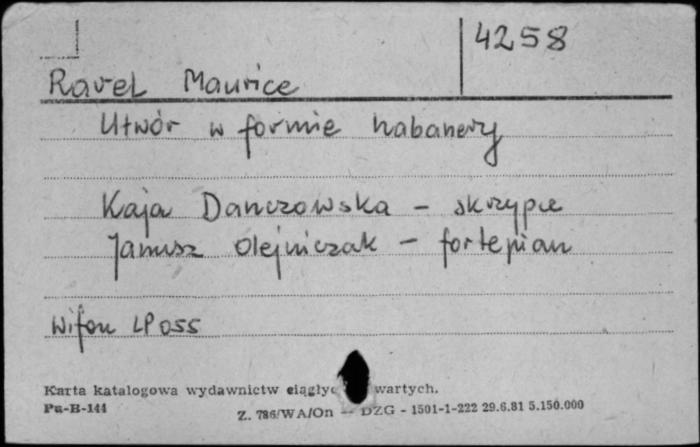 4258
Ravel Maurice
Utwór w formie habanery
Kaja Danczowska - skrzypce
Janusz Olejniczak - fortepian
Wifon LP055
Karta katalogowa wydawnictw wartych.
Pu-B-144
Z. 786/WA/On — DZG - 1501-1-222 29.6.81 5.150.000